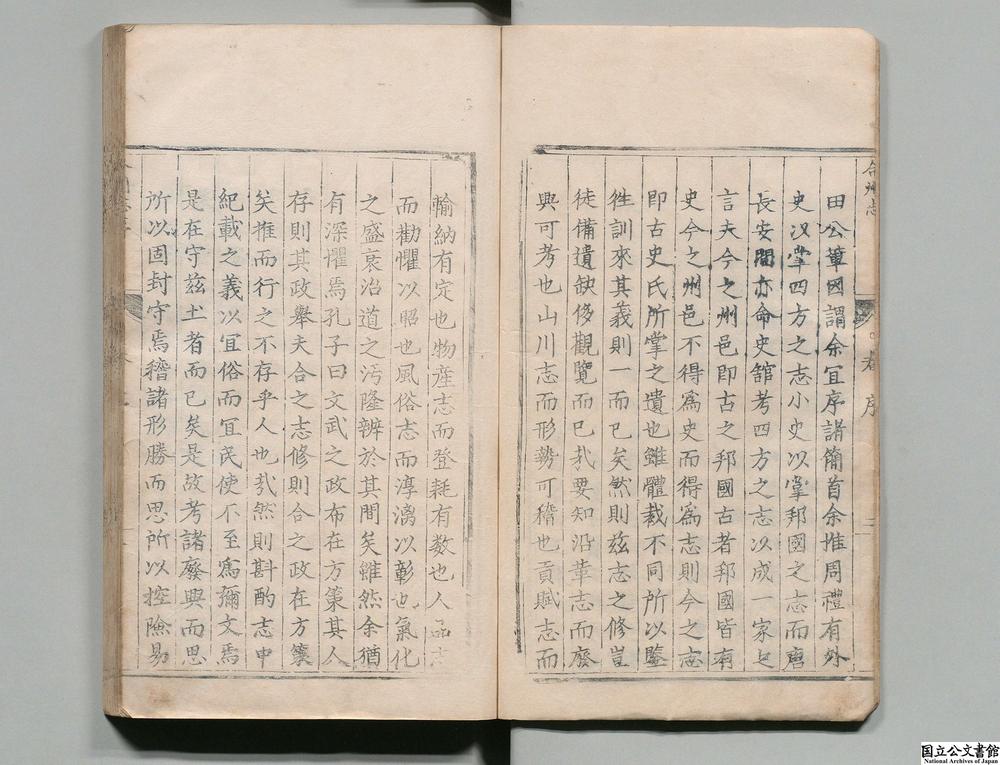 合州志
序
二
田公華因謂余宜序諸簡首余惟周禮有外
史汉掌四方之志小史以掌邦國之志而唐
長安間亦命史舘考四方之志以成一家之
言夫今之州邑即古之邦國古者邦國皆有
史今之州邑不得為史而得為志則今之志
即古史氏所掌之遺也雖體裁不同所以鑒
徃訓來其義則一而已矣然則兹志之修豈
徒備遺缺侈觀覽而已㢤要知沿革志而廢
興可考也山川志而形勢可稽也貢賦志而
輸納有定也物產志而登耗有数也人品志
而勸懼以昭也風俗志而淳漓以彰也氣化
之盛衰治道之汚隆辨於其間矣雖然余猶
有深懼焉孔子曰文武之政布在方策其人
存則其政舉夫合之志修則合之政在方策
矣推而行之不存乎人也㢤然則斟酌志中
紀載之義以宜俗而宜民使不至為彌文焉
是在守兹土者而已矣是故考諸廢興而思
所以固封守焉稽諸形勝而思所以控險易
国立公文書館
National Archives of Japan